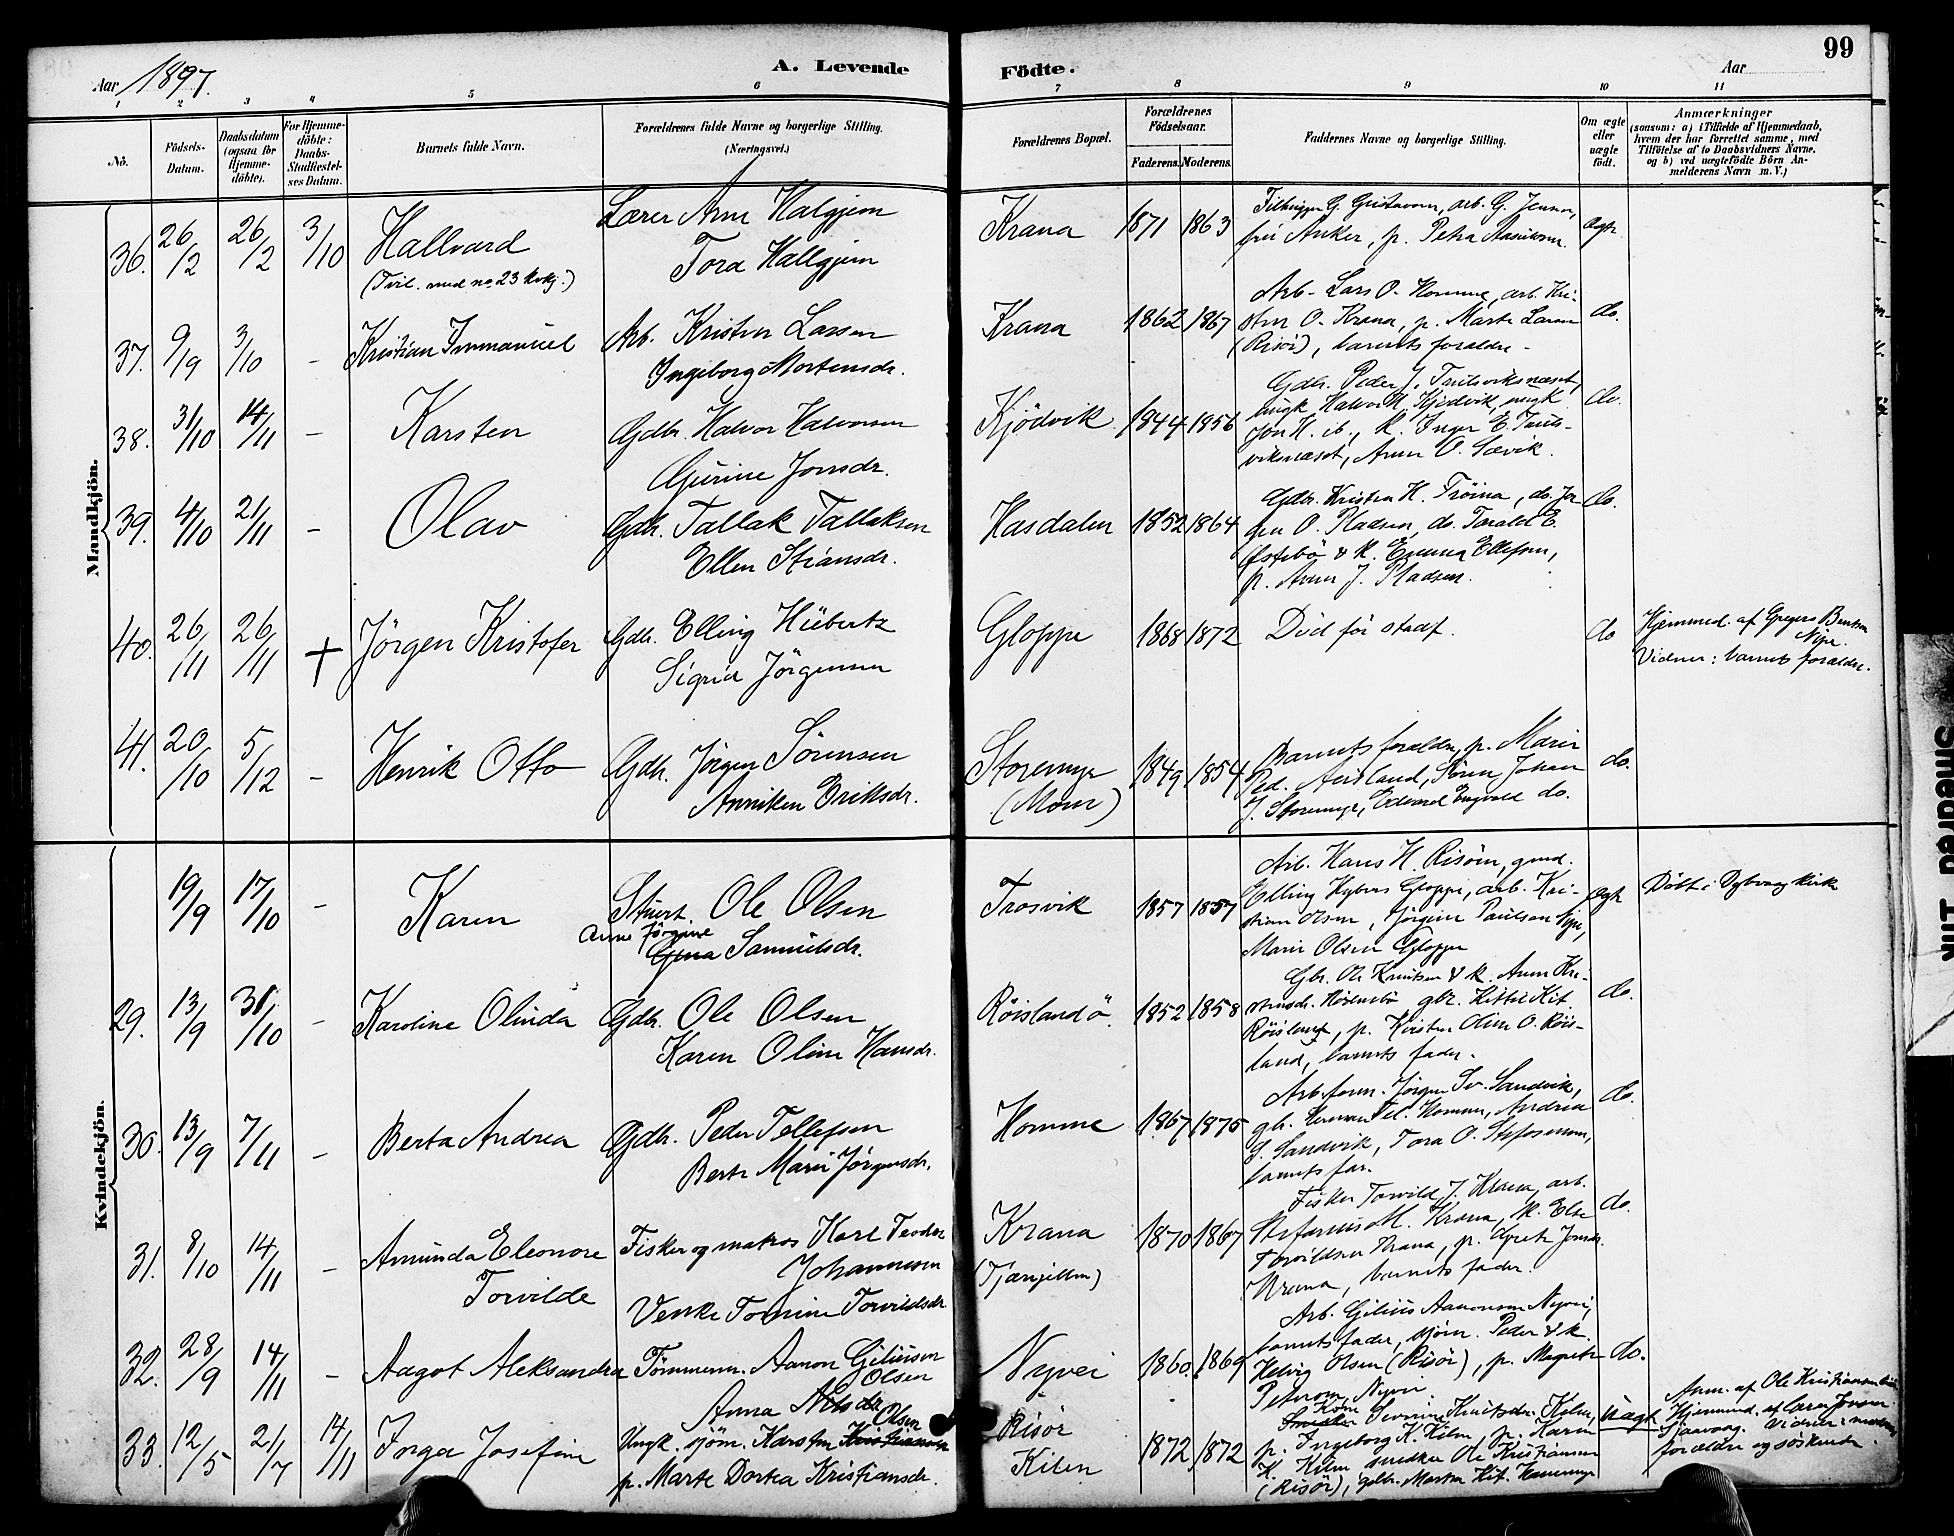 99
Aar 1897.
A. Levende Födte.
Aar
1 2 3 4 5 6 7 8 9 10 11
No.
Födsels-Datum.
Daabsdatum (ogsaa for Hjemme-döbte).
For Hjemme-döbte: Daabs-Stadfæstel-ses Datum.
Barnets fulde Navn.
Forældrenes fulde Navne og borgerlige Stilling. (Næringsvei.)
Forældrenes Bopæl.
Forældrenes Födselsaar.
Faderens. Moderens.
Faddernes Navne og borgerlige Stilling.
Om ægte eller uægte födt.
Anmærkninger
(saasom: a) i Tilfælde af Hjemmedaab,
hvem der har forrettet samme, med
Tilföielse af to Daabsvidners Navne,
og b) ved uægtefödte Börn An-
melderens Navn m. V.)
Mandkjön.
36. 26/2 26/2 3/10 Hallvard
(Tvil. med no 23 kvkj.)
Lærer Arne Halgjem
Tora Hallgjem
Krana 1871 1863
fru Anker, p. Petra
ægte
37. 9/9 3/10 - Kristian Immanuel
Arb. Kristen Larsen
Ingeborg Mortensdr.
Krana 1862 1867
Arb. Lars O. Homme, arb. Kri-
sten O. Krana, p. Marte Larsen
(Risör), barnets forældre -
do.
38. 31/10 14/11 - Karsten
Gdbr. Halvor Halvorsen
Gurine Jonsdr.
Kjödvik 1844 1856
Gdbr. Peder J.
ungk. Halvor H. Kjödvik, ungk.
Jon H. ib., k. Inger E.
viksnæset, Anne O. Sævik.
do.
39. 4/10 21/11 - Olav
Gdbr. Tallak Tallaksen
Ellen Stiansdr.
Hasdalen 1852 1864
Gdbr. Kristen H. Tröina, do. Jör
gen O. Pladsen, do. Tarald E.
Östebö & k. Emma Ellefsen,
p. Anne J. Pladsen.
do.
40. 26/11 26/11 + Jörgen Kristofer
Gdbr. Elling Hübertz
Sigrid Jörgensen
Gloppe 1868 1872
Död för stadf.
do
Hjemmed. af Gregers Bentsen
Nipe.
Vidner: barnets forældre.
41. 20/10 5/12 - Henrik Otto
Gdbr. Jörgen Sörensen
Anniken Eriksdr.
Storemyr
(Moen)
1849 1854
Barnets forældre, p. Marie
Ped. Aasland, Sören Johan
J. Storemyr, Edvard Engvald do.
do.
Kvindekjön.
19/9 17/10 - Karen
Stuert. Ole Olsen
Anne Jörgine
Gina Samuelsdr.
Trosvik 1857 1857
Arb. Hans H. Risöen, gmd.
Elling Hybers Gloppe, arb. Kri-
stian Olsen, Jörgine Paulsen Nipe,
Marie Olsen Gloppe
ægte
Döbt i Dybvaag kirke
29. 13/9 31/10 - Karoline Olinda
Gdbr. Ole Olsen
Karen Oline Hansdr.
Röislandö 1852 1858
Gbr. Ole Knutsen & k. Anne Kri-
stensdr. gbr. Kittel Kit.
Röisland, p. Kirsten Oline O. Röis-
land, barnets fader.
do.
30. 13/9 7/11 - Berta Andrea
Gdbr. Peder Tellefsen
Berte Marie Jörgensdr.
Homme 1867 1875
Arb.form. Jörgen Sv. Sandvik,
gb. Herman Tel. Homme, Andrea
J. Sandvik, Tora O.
barnets far.
do.
31. 8/10 14/11 - Amunda Eleonore
Torvilde
Fisker og matros Karl Teodor
Johannesen
Venke Tomine Torvildsdr.
Krana
1870 1867
Fisker Torvild J. Krana, arb.
Stefanus M. Krana, k. Else
Torvildsen Krana, p. Agnete Jonsdr.
Krana, barnets fader.
do.
32. 28/9 14/11 - Aagot Aleksandra
Tömmerm. Aanon Giliusen
Olsen
Anna Nilsdr
Nyvei 1860 1869
Arb. Gilius Aanonsen Nyvei,
barnets fader, sjöm. Peder & k.
Helvig Olsen (Risör), p. Magrete
Petersen, Nyvei.
do.
33. 12/5 21/7 14/11 Inga Josefine
Olsen
Ungk. sjöm. Karsten Kristiansen
p. Marte Dortea Kristiansdr.
Risör
Kilen
1872 1872
Kone
Smeden Severine Knutsdr. Kilen,
p. Ingeborg K. Kilen, p. Karen
K. Kilen smeden Ole Kristiansen
(Risör), gdbr. Morten Kit.
Uægte
Anm. af Ole Kristiansen
Hjemmed. af Jensen
Vidner:
forældre og söskende.